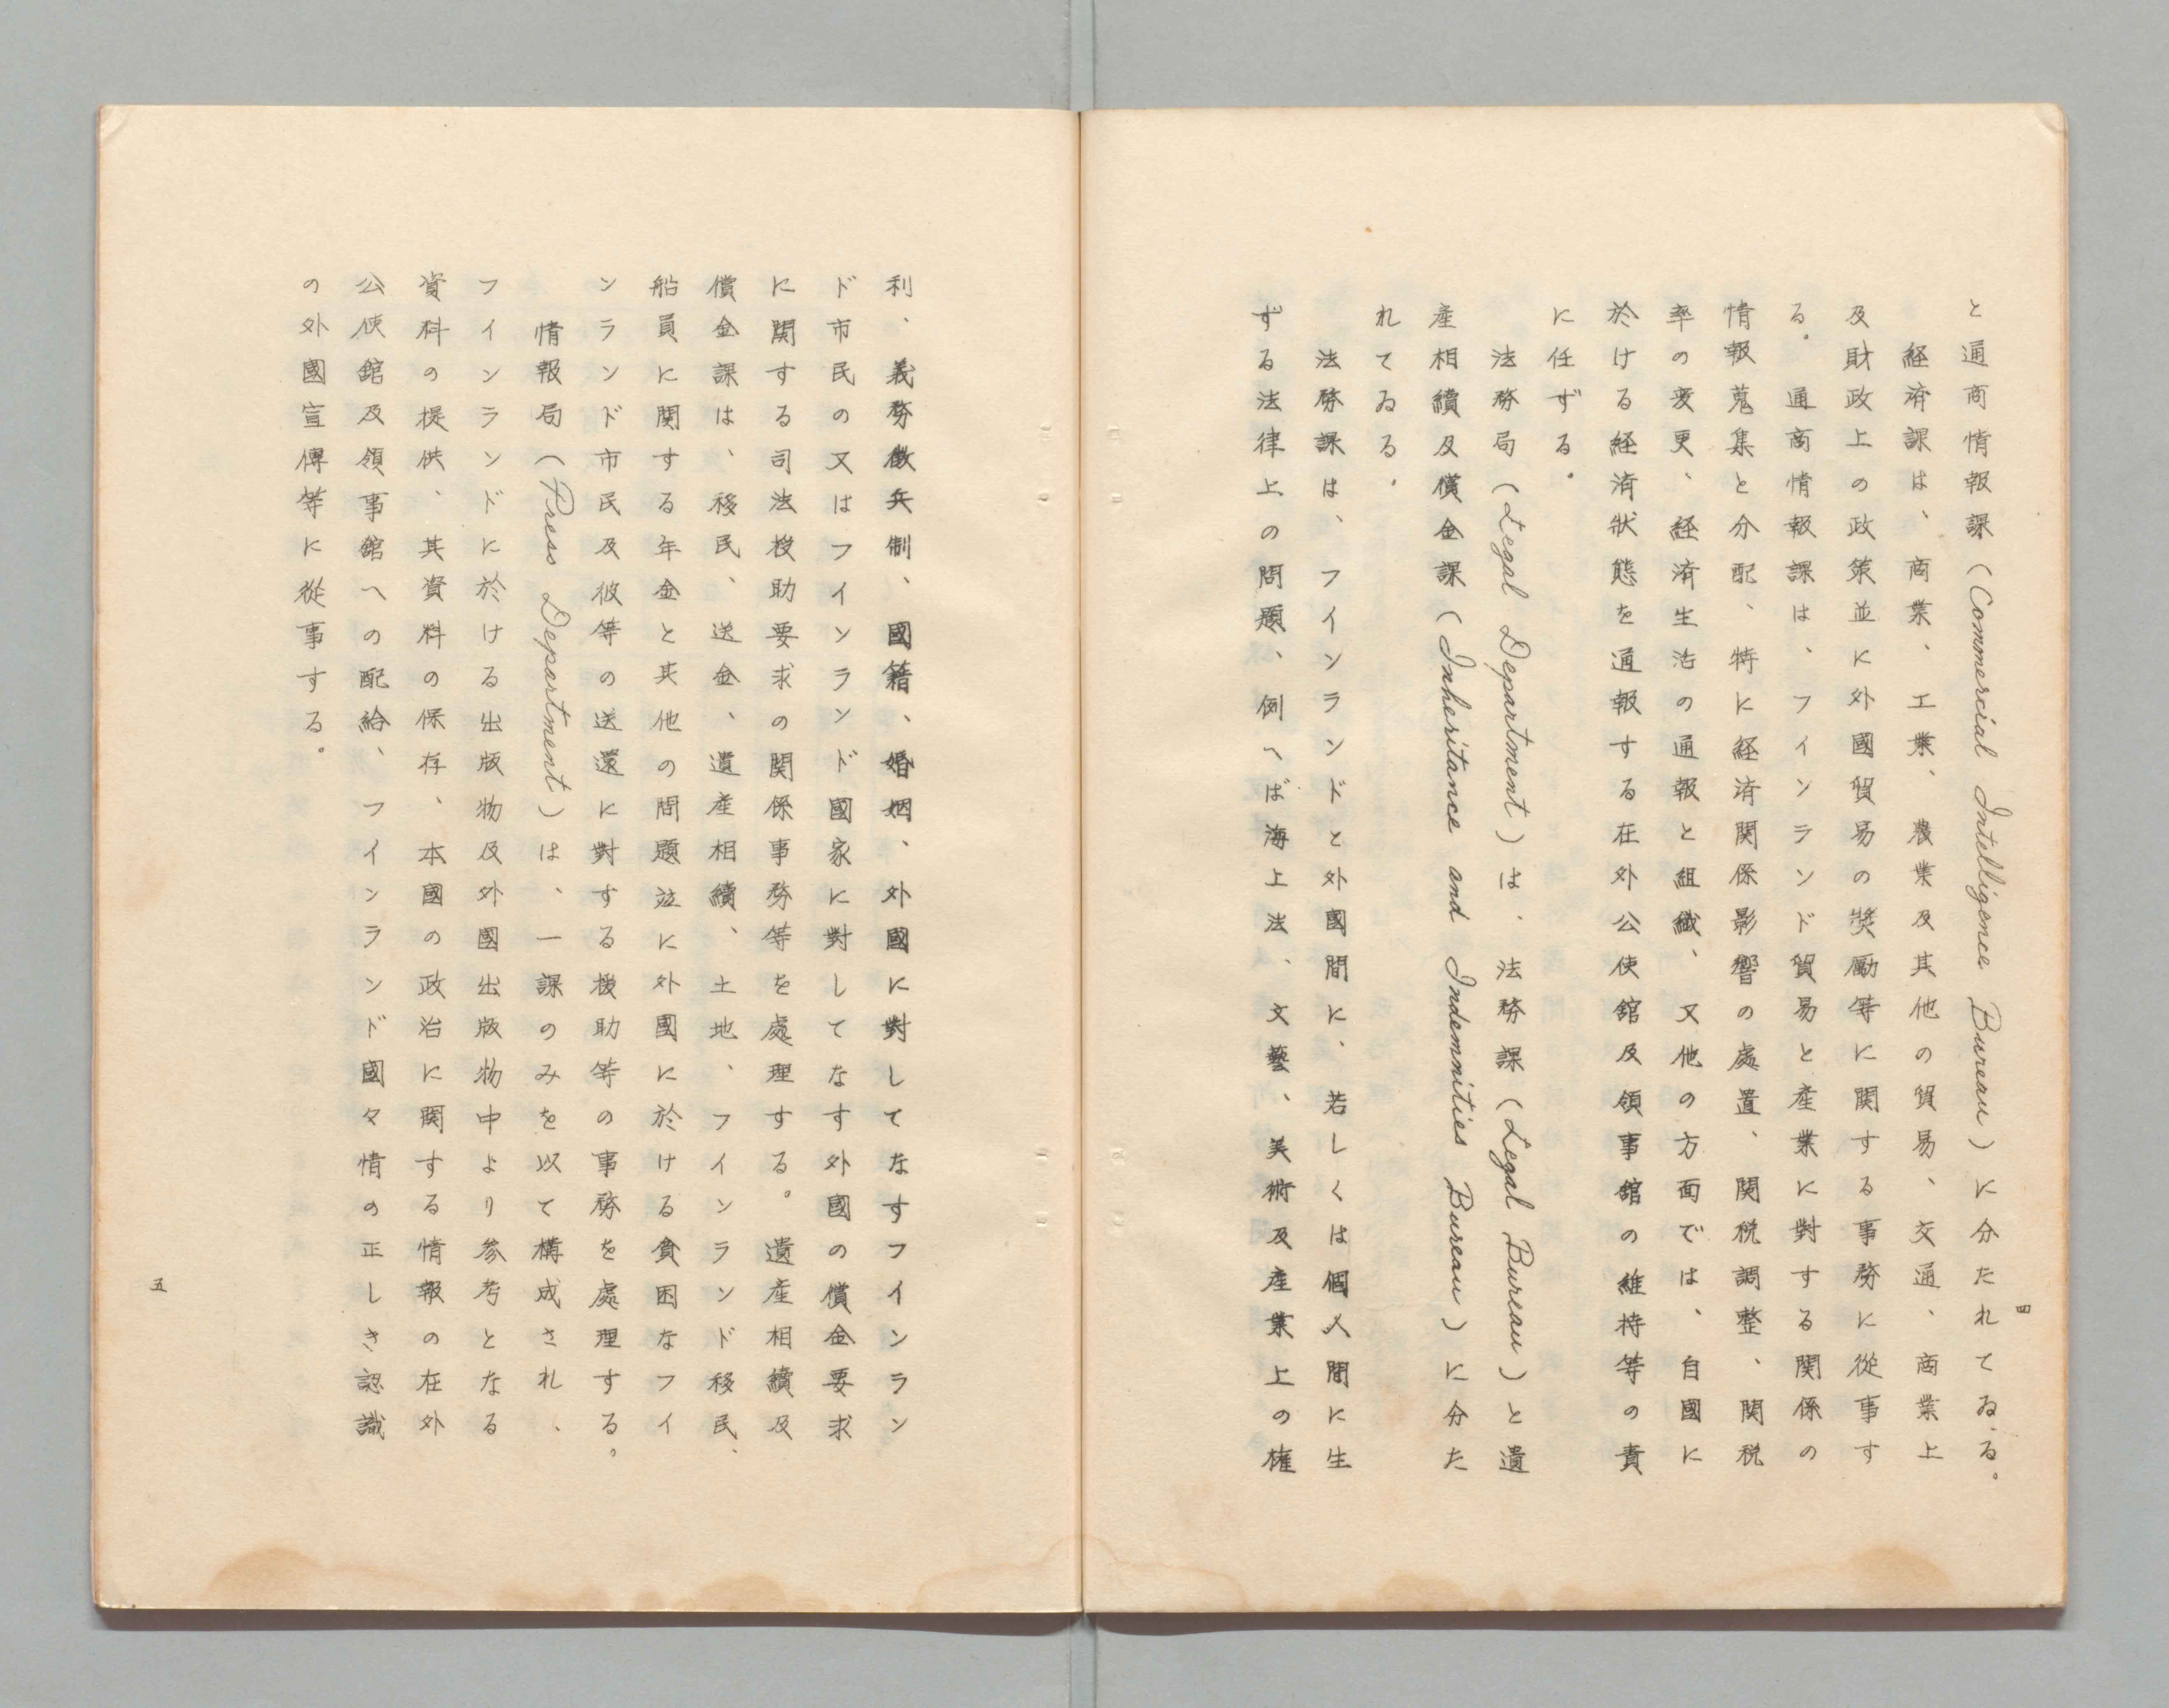 と通商情報課（Commercial Intelligence Bureau）に分たれてゐる。
経済課は、商業、工業、農業及其他の貿易、交通、商業上
及財政上の政策並に外國貿易の奬勵等に関する事務に從事す
る。通商情報課は、フインランド貿易と産業に對する関係の
情報蒐集と分配、特に経済関係影響の處置、関税調整、関税
率の変更、経済生活の通報と組織、又他の方面では、自國に
於ける経済狀態を通報する在外公使館及領事館の維持等の責
に任ずる。
法務局（Legal Department）は、法務課（Legal Bureau）と遺
産相續及償金課（Inheritance and Indemnities Bureau）に分た
れてゐる。
法務課は、フインランドと外國間に、若しくは個人間に生
ずる法律上の問題、例へば海上法、文藝、美術及産業上の権
四
利、義務徴兵制、國籍、婚姻、外國に對してなすフインラン
ド市民の又はフインランド國家に對してなす外國の償金要求
に関する司法援助要求の関係事務等を處理する。遺産相續及
償金課は、移民、送金、遺産相續、土地、フインランド移民、
船員に関する年金と其他の問題竝に外國に於ける貧困なフイ
ンランド市民及彼等の送還に對する援助等の事務を處理する。
情報局（Press Department）は、一課のみを以て構成され、
フインランドに於ける出版物及外國出版物中より参考となる
資料の提供、其資料の保存、本國の政治に関する情報の在外
公使館及領事館への配給、フインランド國々情の正しき認識
の外國宣傳等に從事する。
五